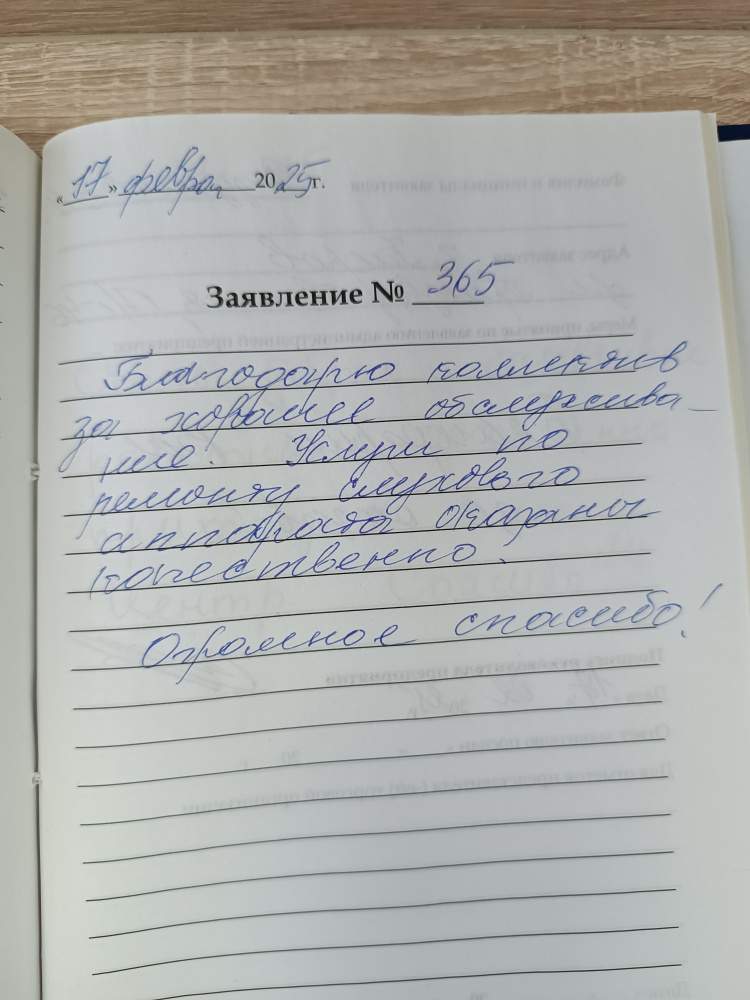 «17» февра 2025г.
Заявление № 365
Благодарю коллектив
за хорошее обслужива-
ние. Услуги по
ремонту слухового
аппарата оказаны
качественно.
Огромное спасибо!